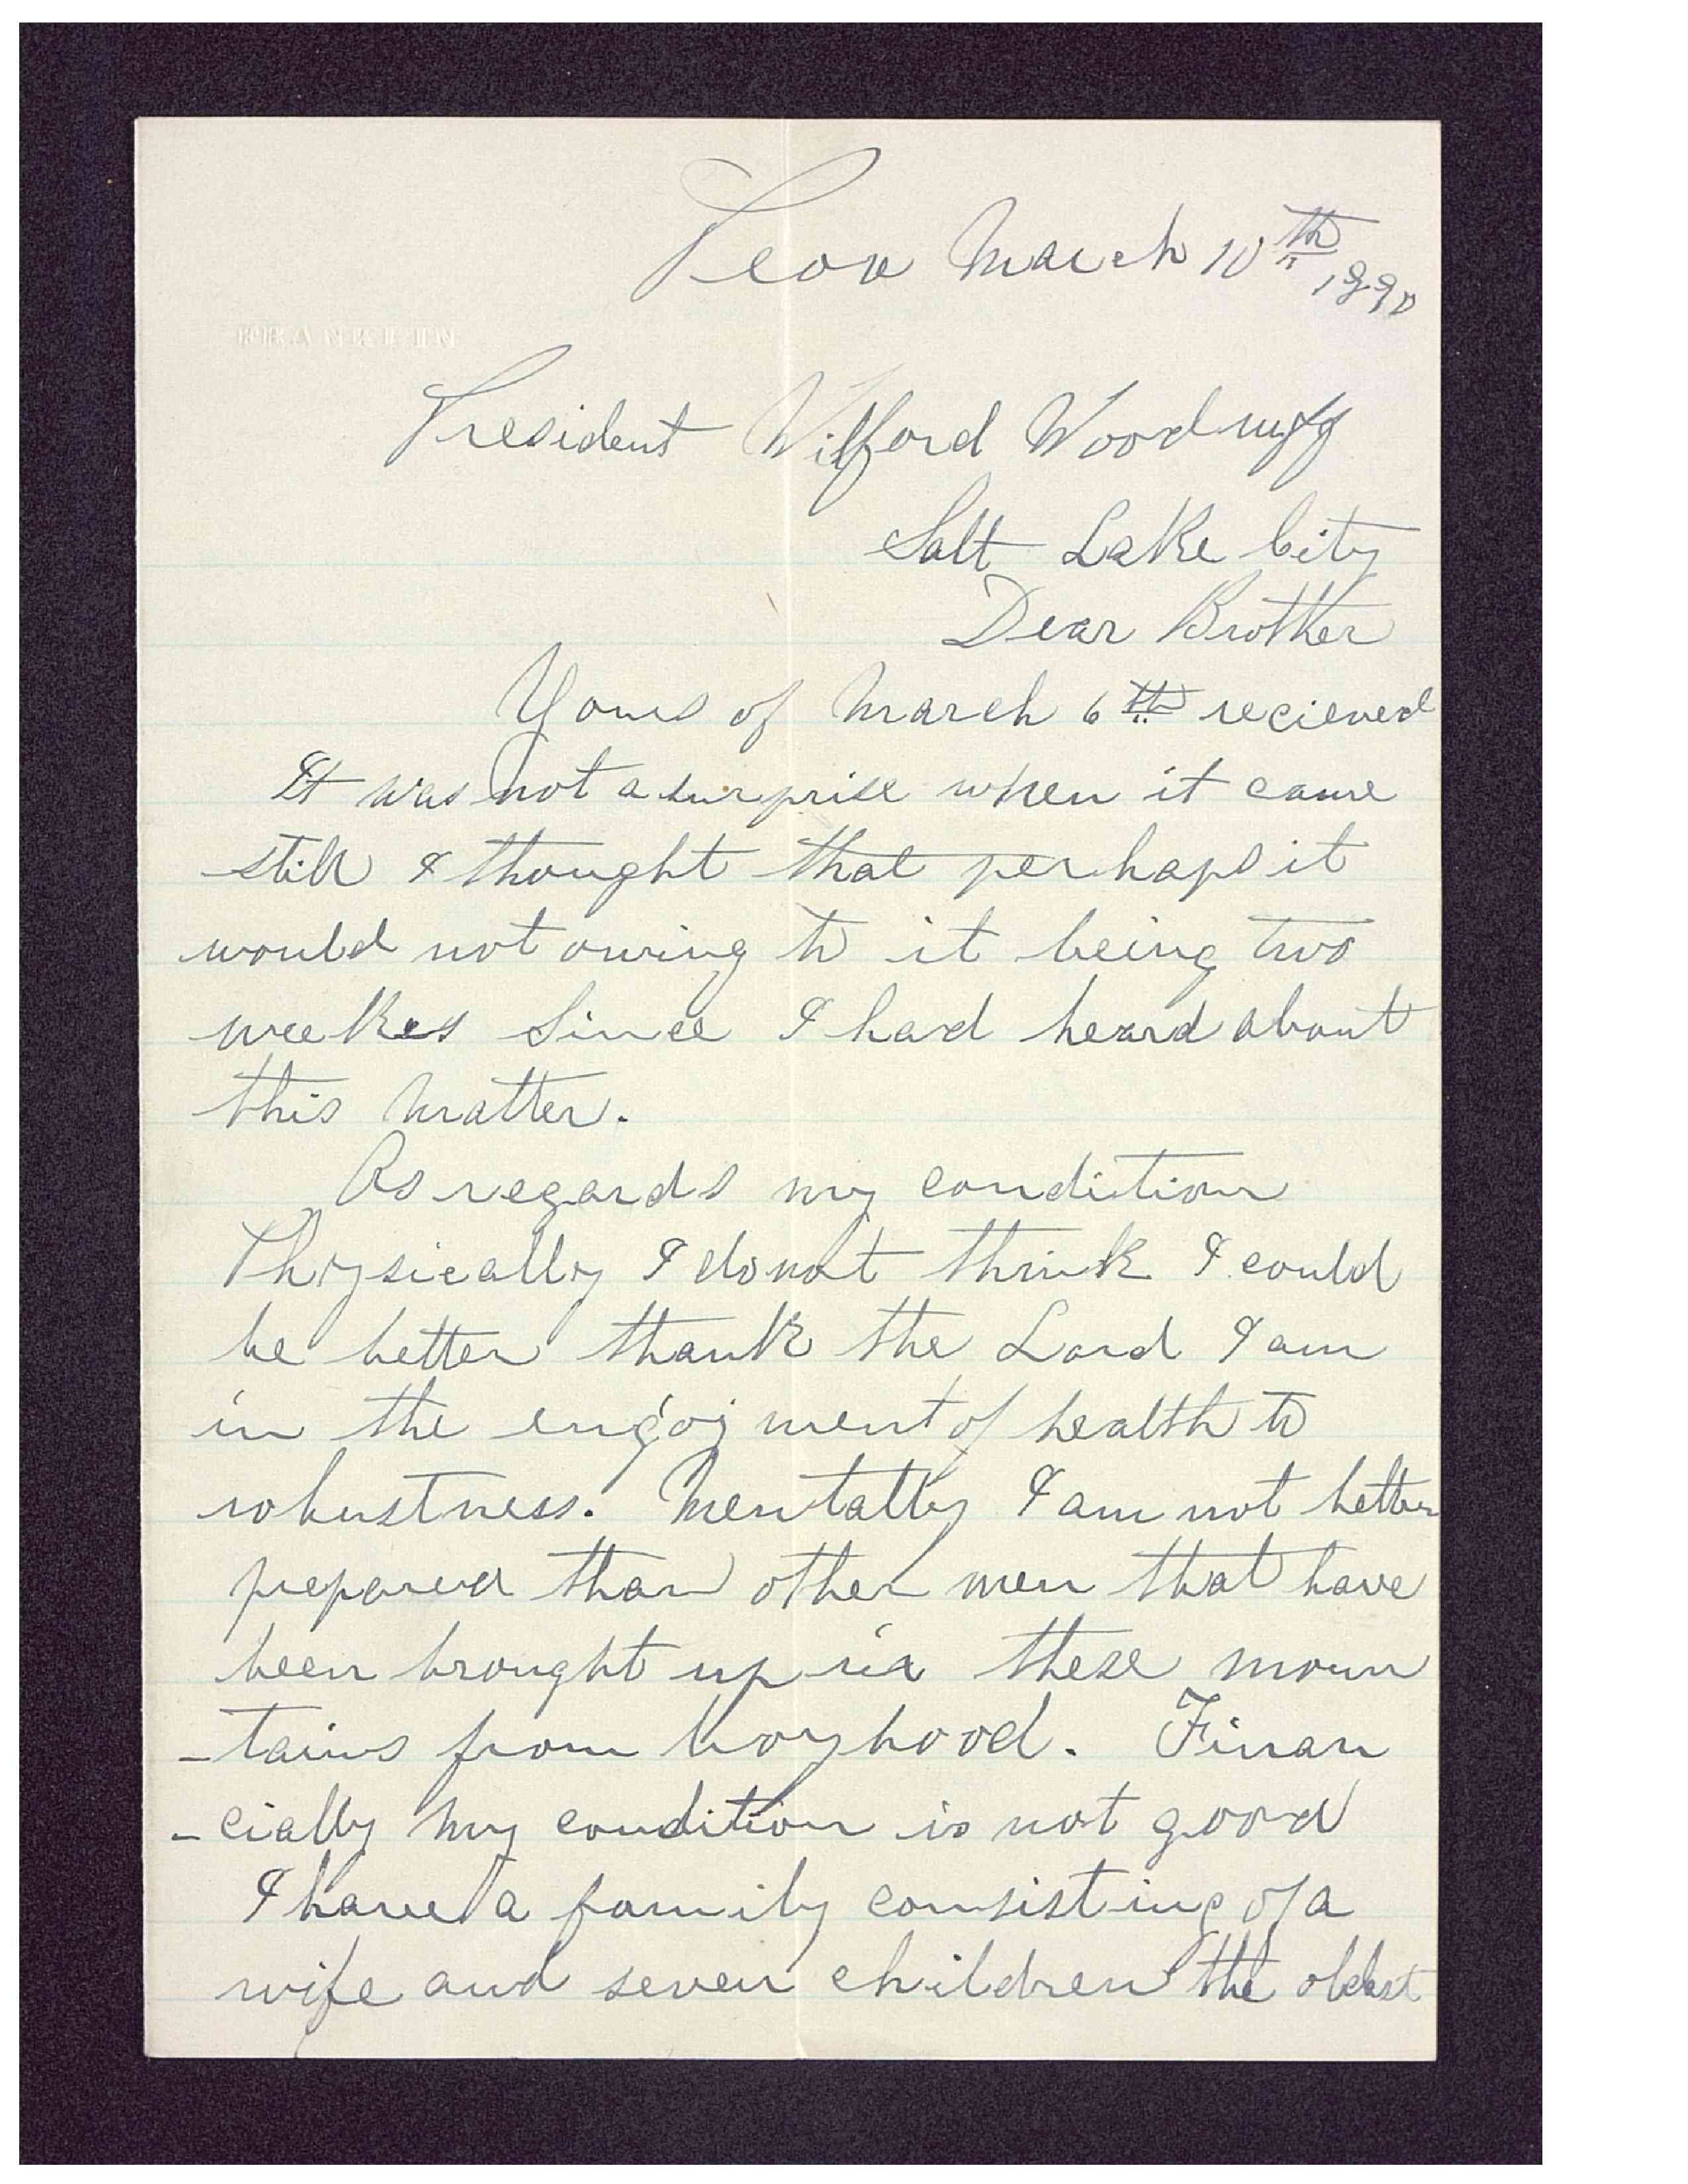 Peoa March 10th
1890
FRANKLIN
President Wilford Woodruff
Salt Lake City
Dear Brother
Yours of March 6th recieved
It was not a surprise when it came
still I thought that perhaps it
would not owing to it being two
weekes since I had heard about
this matter.
As regards my condition
Physically I do not think I could
be better thank the Lord I am
in the enjoyment of health to
robustness. Mentally I am not better
prepared than other men that have
been brought up in these moun
-tains from boyhood. Finan
-cially my condition is not good
I have a family consisting of a
wife and seven children the oldest